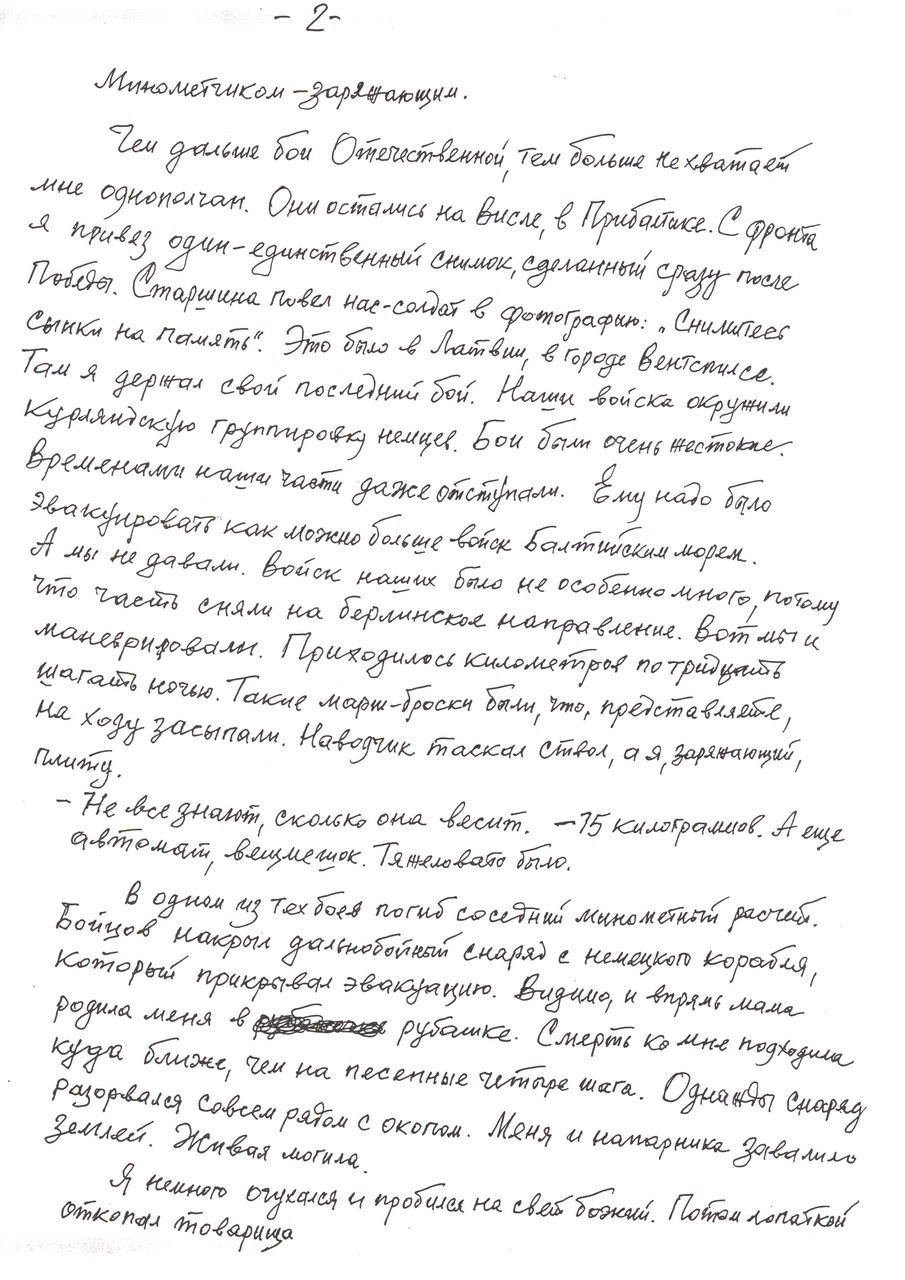 - 2 -
Минометчиком – заряжающим.
Чем дальше бои Отечественной, тем больше не хватает
мне однополчан. Они остались на Висле, в Прибалтике. С фронта
я привез один-единственный снимок, сделанный сразу после
Победы. Старшина повел нас-солдат в фотографию: „Снимитесь
сынки на память“. Это было в Латвии, в городе Вентспилсе.
Там я держал свой последний бой. Наши войска окружили
Курляндскую группировку немцев. Бои были очень жестокие.
Временами наши части даже отступали. Ему надо было
эвакуировать как можно больше войск Балтийским морем.
А мы не давали. Войск наших было не особенно много, потому
что часть сняли на берлинское направление. Вот мы и
маневрировали. Приходилось километров по тридцать
шагать ночью. Такие марш-броски были, что, представляете,
на ходу засыпали. Наводчик таскал ствол, а я, заряжающий,
плиту.
– Не все знают, сколько она весит. – 15 килограммов. А еще
автомат, вещмешок. Тяжеловато было.
В одном из тех боев погиб соседний минометный расчет.
Бойцов накрыл дальнобойный снаряд с немецкого корабля,
который прикрывал эвакуацию. Видимо, и впрямь мама
родила меня в рубашке. Смерть ко мне подходила
куда ближе, чем на песенные четыре шага. Однажды снаряд
разорвался совсем рядом с окопом. Меня и напарника завалило
землей. Живая могила.
Я немного очухался и пробился на свет божий. Потом лопаткой
откопал товарища